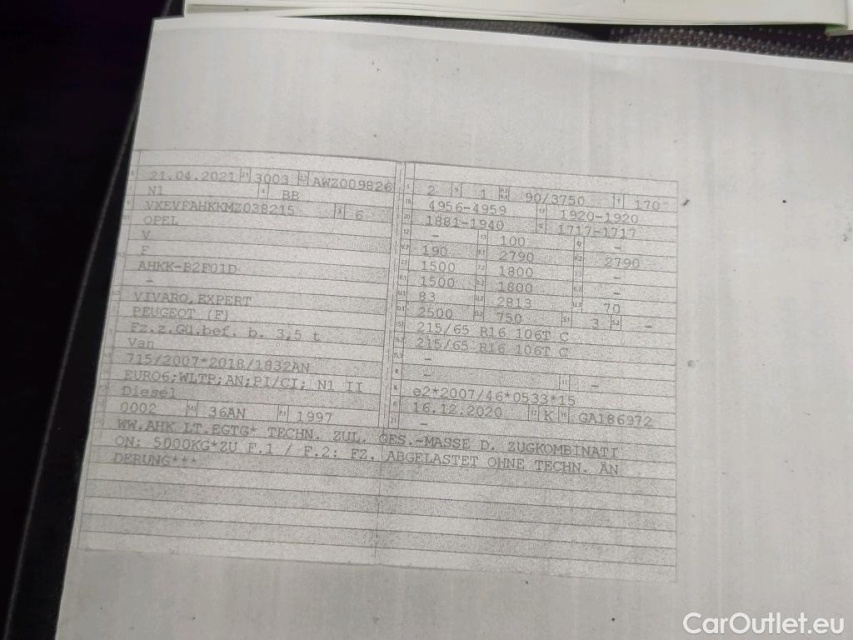 21.04.2021 3003 AWZ009826
N1 BB
VXEVFAHKKMZ038215 6
OPEL
V
F
AHKK-B2F01D
-
VIVARO,EXPERT
PEUGEOT (F)
Fz.z.Gü.bef. b. 3,5 t
Van
715/2007*2018/1832AN
EURO6;WLTP;AN;PI/CI; N1 II
Diesel
0002 36AN 1997
2 1 90/3750 170
4956-4959 1920-1920
1881-1940 1717-1717
- 100 -
190 2790 2790
1500 1800
1500 1800
83 2813 70
2500 750 3 -
215/65 R16 106T C
215/65 R16 106T C
-
- -
e2*2007/46*0533*15
16.12.2020 K GA186972
-
WW.AHK LT.EGTG* TECHN. ZUL. GES.-MASSE D. ZUGKOMBINATI
ON: 5000KG*ZU F.1 / F.2: FZ. ABGELASTET OHNE TECHN. ÄN
DERUNG***
CarOutlet.eu